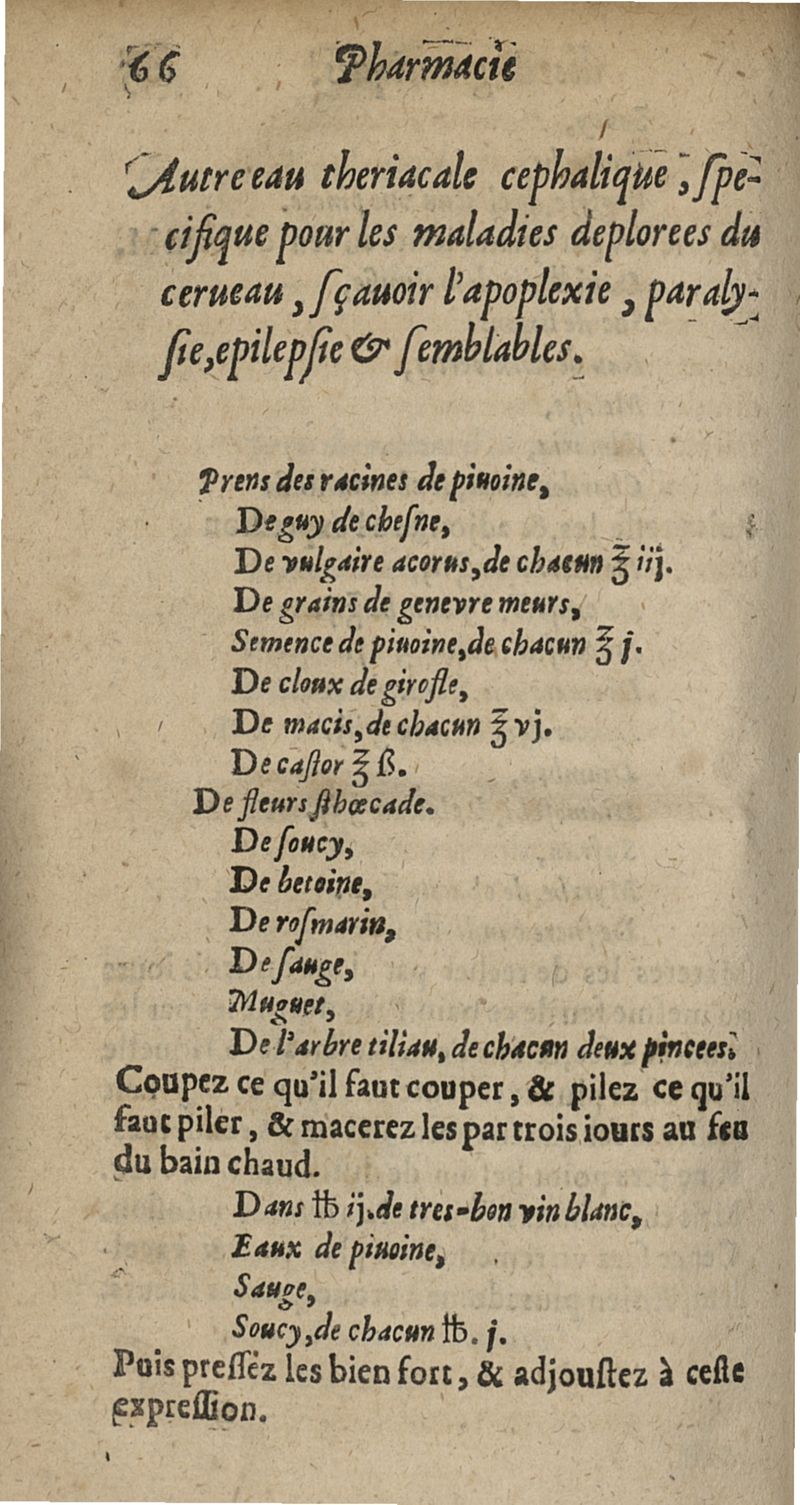 66 Pharmacie
Autre eau theriacale cephalique, ſpe-
cifique pour les maladies deplorees du
cerueau, ſçauoir l'apoplexie, paraly-
ſie, epilepſie & ſemblables.
Prens des racines de piuoine,
De guy de cheſne,
De vulgaire acorus, de chacun ℥ iij.
De grains de genevre meurs,
Semence de piuoine, de chacun ℥ j.
De cloux de girofle,
De macis, de chacun ℥ vj.
De caſtor ℥ ß.
De fleurs ſthœcade.
De ſoucy,
De betoine,
De roſmarin,
De ſauge,
Muguet,
De l'arbre tiliau, de chacun deux pincees.
Coupez ce qu'il faut couper, & pilez ce qu'il
faut piler, & macerez les par trois iours au feu
du bain chaud.
Dans ℔ ij. de tres-bon vin blanc,
Eaux de piuoine,
Sauge,
Soucy, de chacun ℔. j.
Puis preſſéz les bien fort, & adjouſtez à ceſte
expreſſion.